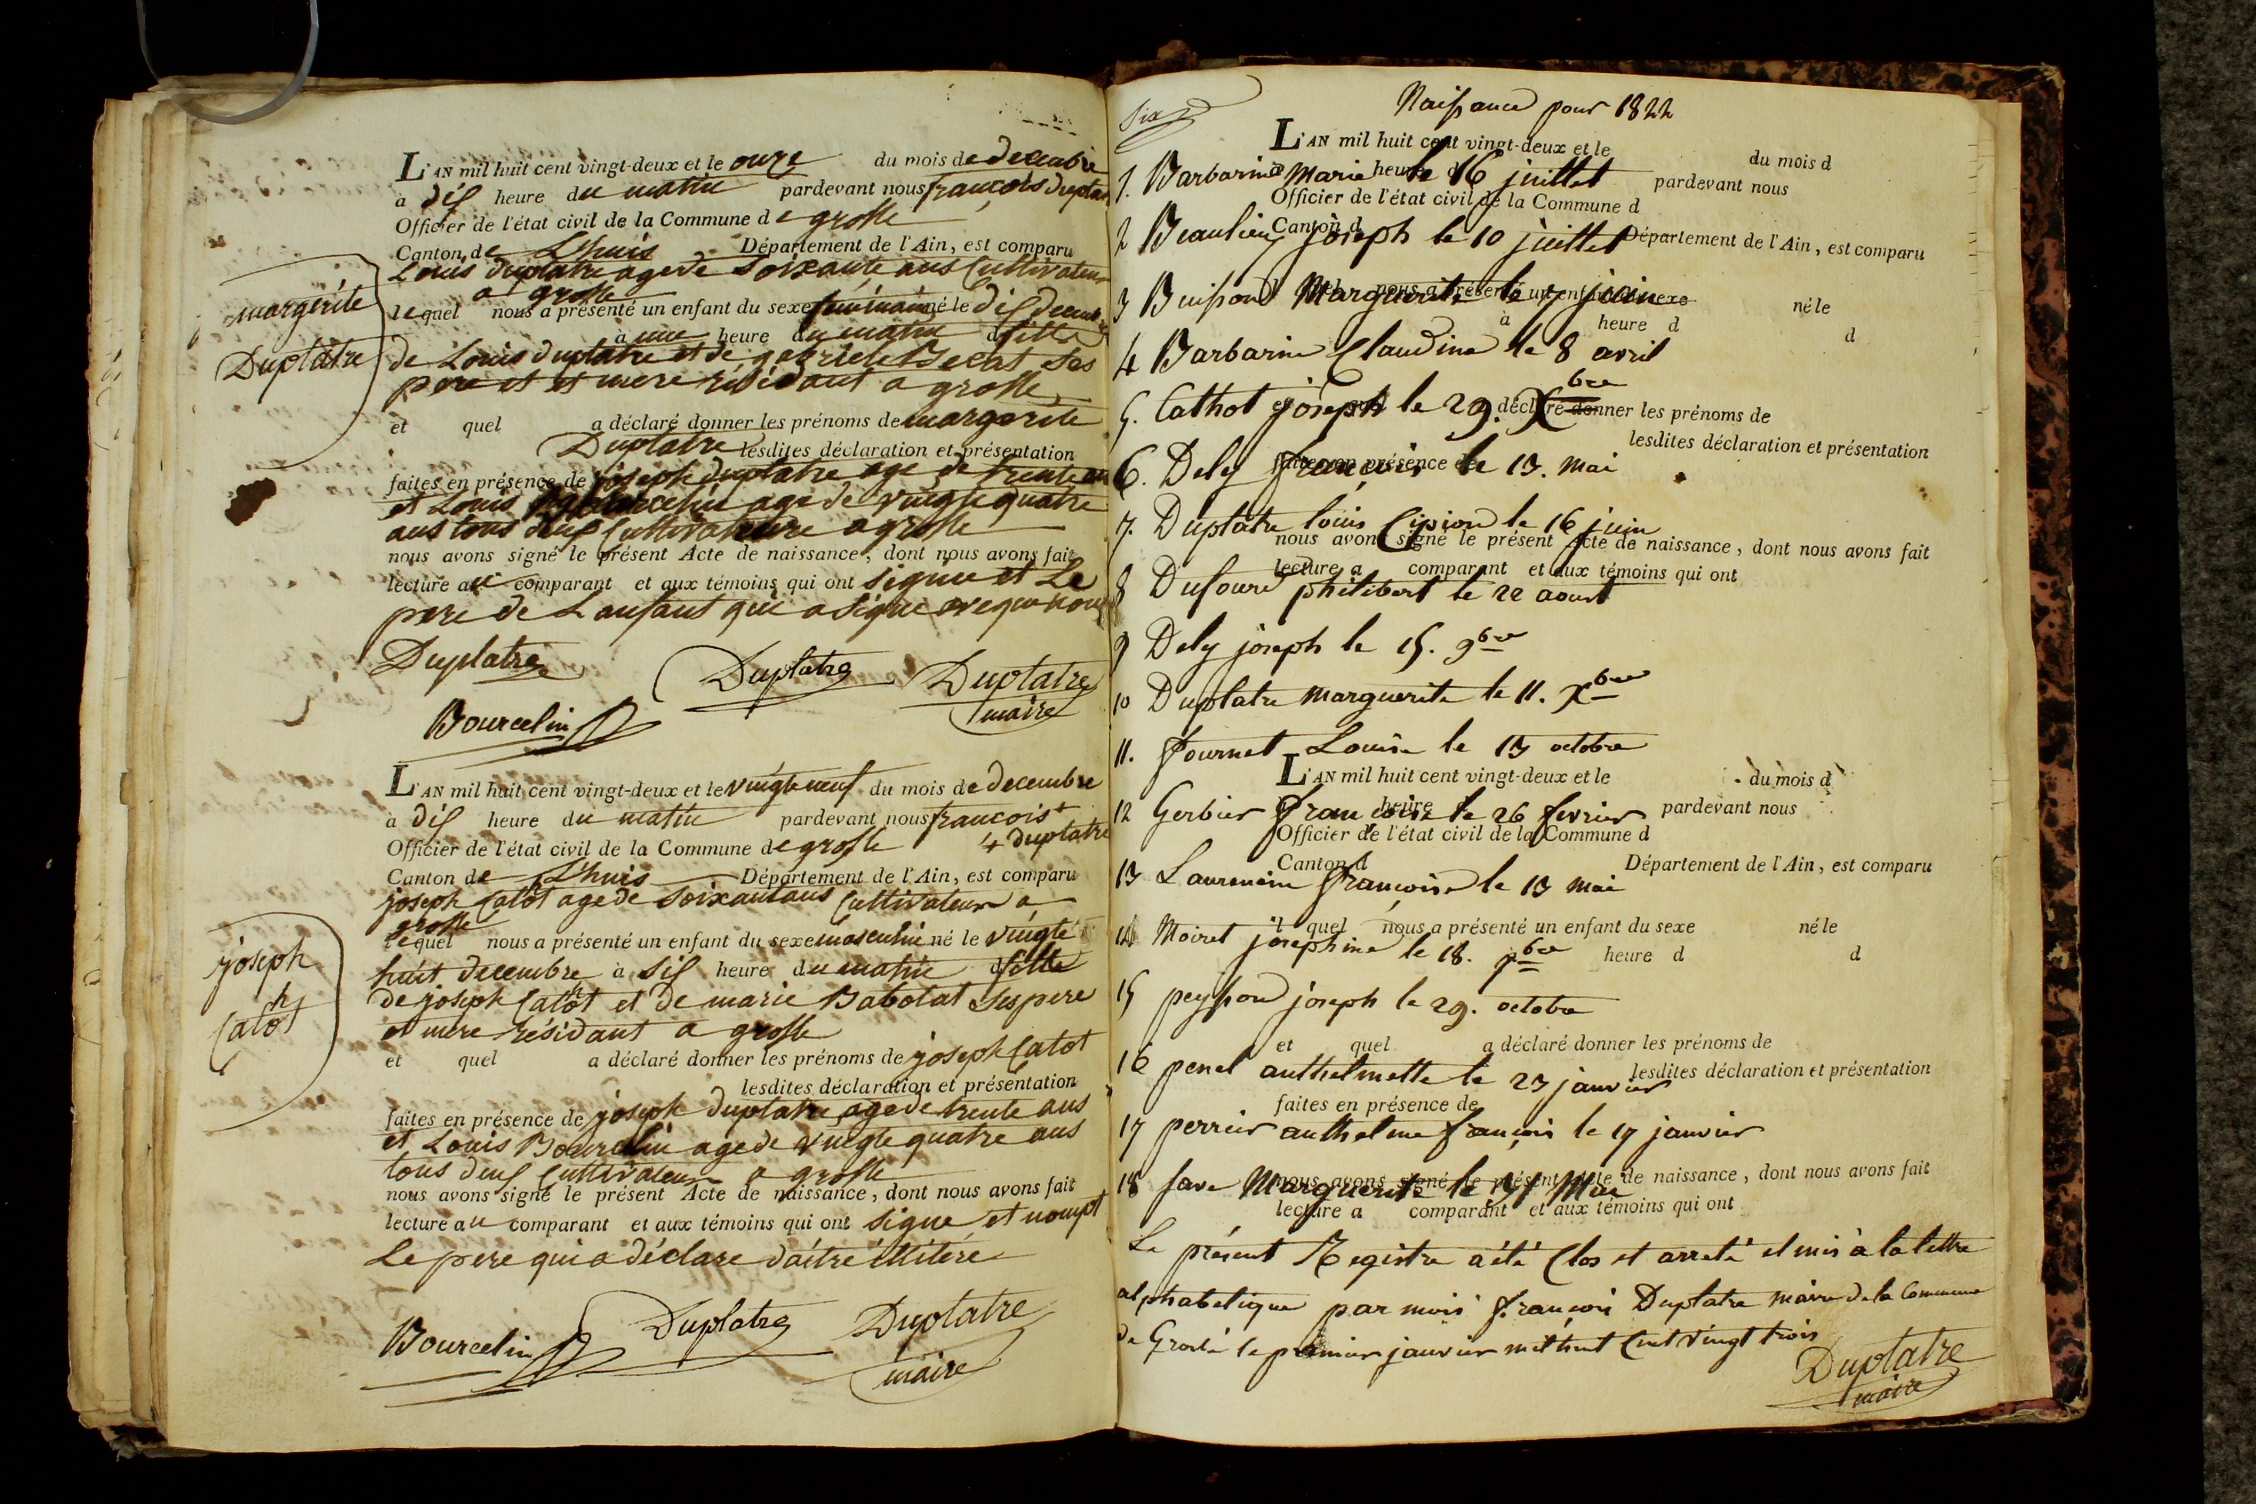 L'AN mil huit cent vingt-deux et le onze du mois de decembre
à dis heure du matin pardevant nous françois duplatre
Officier de l'état civil de la Commune de grosle
Canton de L'huis Département de l'Ain, est comparu
Louis duplatre age de soixante ans Cultivateur
a grosle
lequel nous a présenté un enfant du sexe feminain né le dis decembre
à une heure du matin d fille
de Louis duplatre et de gabriele Becat ses
pere et et mere résidant a grosle
et quel a déclaré donner les prénoms de margerite
Duplatre lesdites déclaration et présentation
faites en présence de joseph duplatre age de trente ans
et Louis Bourcelin age de vingte quatre
ans tous deus Cultivateure a grosle
nous avons signé le présent Acte de naissance, dont nous avons fait
lecture au comparant et aux témoins qui ont signe et Le
pere de L'anfant qui a signe aveque nous
margérite
Duplatre
Duplatre Duplatre Duplatre
Bourcelin maire
L'AN mil huit cent vingt-deux et le vingte neuf du mois de decembre
à dis heure du matin pardevant nous francois
Officier de l'état civil de la Commune de grosle duplatre
Canton de L'huis Département de l'Ain, est comparu
joseph Catot age de soixant ans Cultivateur a
grosle
lequel nous a présenté un enfant du sexe masculin né le vingte
huit decembre à sis heure du matin d fille
de joseph Cathot et de marie Babolat ses pere
et mere résidant a grosle
et quel a déclaré donner les prénoms de joseph Catot
lesdites déclaration et présentation
faites en présence de joseph duplatre age de trente ans
et Louis Bourcelin age de vingte quatre ans
tous deus Cultivateur a grosle
nous avons signé le présent Acte de naissance, dont nous avons fait
lecture au comparant et aux témoins qui ont signe et nompt
Le pere qui a déclare d'aitré illitére
joseph
Cathot
Bourcelin Duplatre Duplatre
maire
Six
Naissance pour 1822
L'AN mil huit cent vingt-deux et le du mois d
1. Barbarin Marie le 16 juillet
à heure d pardevant nous
Officier de l'état civil de la Commune d
2 Beaulieu joseph le 10 juillet
Canton d Département de l'Ain, est comparu
3 Buisson Marguerite le 7 juin
quel nous a présenté un enfant du sexe né le
à heure d d
4 Barbarin Claudine le 8 avril
5. Cathot joseph le 29. Xbre
et quel a déclaré donner les prénoms de
lesdites déclaration et présentation
6. Dely françois le 13. mai
faites en présence de
7. Duplatre louis Cipion le 16 juin
nous avons signé le présent Acte de naissance, dont nous avons fait
lecture a comparant et aux témoins qui ont
8 Dufour philibert le 22 aoust
9 Dely joseph le 15. 9bre
10 Duplatre marguerite le 11. Xbre
11. fournet Louise le 13 octobre
L'AN mil huit cent vingt-deux et le du mois d
12 Gerbier françoise le 26 fevrier
à heure pardevant nous
Officier de l'état civil de la Commune d
Canton d Département de l'Ain, est comparu
13 Laurencin françoise le 13 mai
l quel nous a présenté un enfant du sexe né le
14 Moiret josephine le 18. 7bre
heure d d
15 peysson joseph le 29. octobre
et quel a déclaré donner les prénoms de
16 penel anthelmette le 23 janvier
lesdites déclaration et présentation
faites en présence de
17 perrier anthelme françois le 17 janvier
18 fave Marguerite le
nous avons signé le présent Acte de naissance, dont nous avons fait
lecture a comparant et aux témoins qui ont
Le présent Registre a été Clos et arreté et mis à la lettre
alphabetique par mois françois Duplatre maire de la Commune
de Groslé le premier janvier mil huit Cent vingt trois
Duplatre
maire